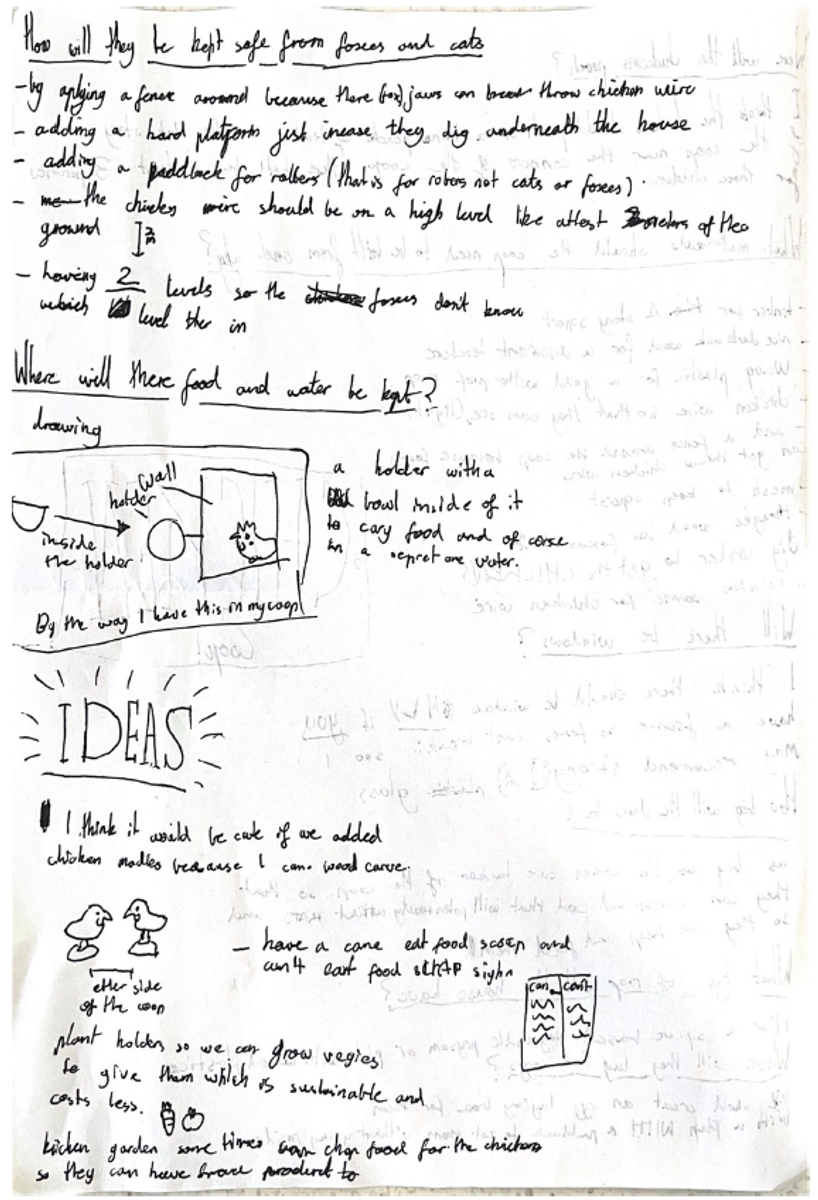 How will they be kept safe from foxes and cats
-by aplying a fence around because there (fox) jaws can break throw chicken wire
- adding a hard platform just incase they dig underneath the house
- adding a paddlock for robbers (that is for robers not cats or foxes).
- the chicken wire should be on a high level like attest 2 meters of the
ground ]2m
- having 2 levels so the foxes don't know
which level ther in
Where will there food and water be kept?
drawing
wall
holder
inside
the holder
By the way I have this in my coop
a holder with a
bowl inside of it
to cary food and of corse
in a sepret one water.
IDEAS
I think it would be cute if we added
chicken modles because I can wood carve.
ether side
of the coop
- have a cane eat food scrap and
can't eat food scrap sighn
can can't
plant holders so we can grow vegies
to give them which is sustainable and
costs less.
kichen garden some times can chop food for the chickens
so they can have product to